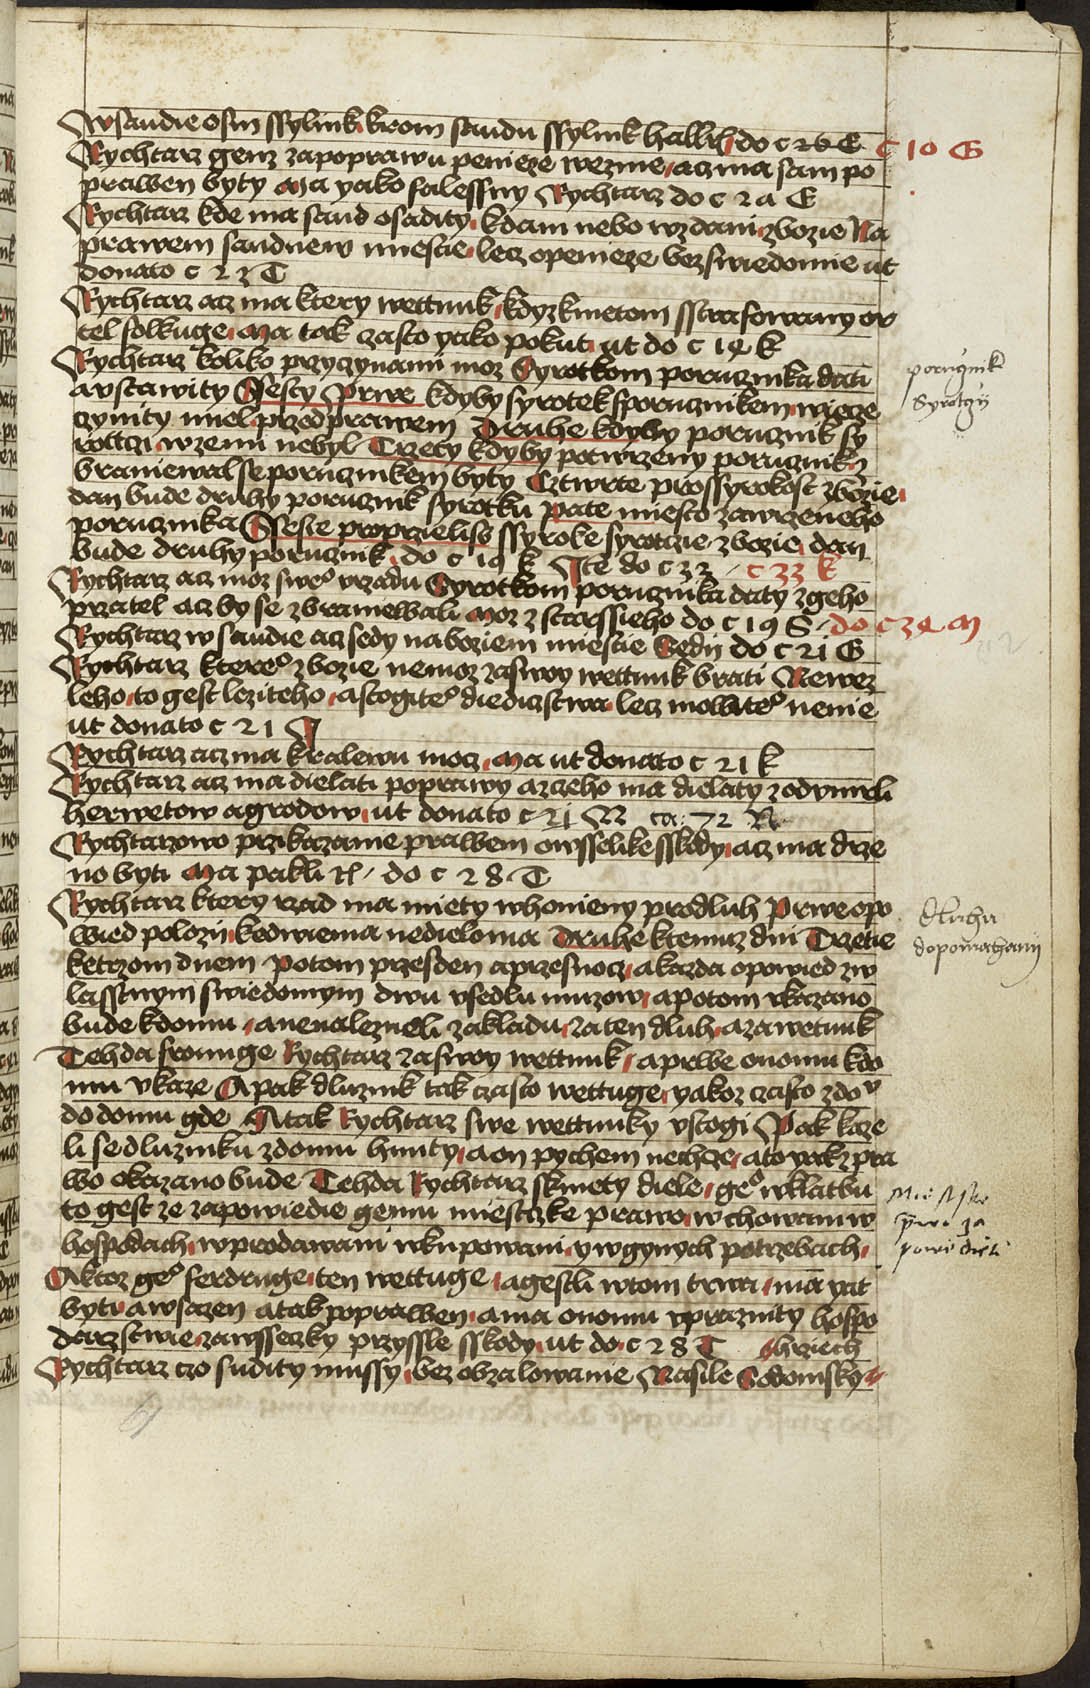 W saudie osm ssylink krom saudu ssylink halblich do c 26 E c 10 G
Rychtarz genz zapoprawu penieze wezme acz ma sam po
prawen byty Ma yako falessny Rychtarz do c 2a E
Rychtarz kde ma saud osadity kdam nebo wzdani zbozie Na
prawem saudnem miestie lecz openieze bez swiedomie ut
donato c 23 T
Rychtarz acz ma ktery wettunk kdyz kmetom sstrafowany or
tel folkuge Ma tak czasto yako pokut ut do c 14 k
Rychtarz koliko przyczynami moz Syrotkom porucznika dati
a vstawity Sesty Prwe kdyby syrotek s porucznikem wiecze
czynity miel przed prawem Druhe kdyby porucznik sy
rottczi wzemi nebyl Trzety kdyby potwrzeny porucznik z
braniewal se porucznikem byty Cztwrte pro ssyrokost zbozie
dan bude druhy porucznik syrotku pate miesto zawrzeneho
porucznika Sseste proprzieliss ssyroke syrotczie zbozie dan
bude druhy porucznik do c 19 k Ite do c 32 c 33 k
Rychtarz acz moz sweo vrzadu Syrotkom porucznika daty z geho
przatel acz by se zbraniewali Moz z starssieho do c 19 S do c 34 M
Rychtarz w saudie acz sedy na boziem miestie Sedij do c 21 G
Rychtarz ktereo zbozie nemoz za swoy wettunk brati Newez
leho to gest leziteho a stogiteo diediczstwa lecz mowiteo nenie
ut donato c 21
Rychtarz acz ma kralewu mocz Ma ut donato c 21 k
Rychtarz acz ma dielati poprawy a z czeho ma dielaty z odumrli
herwetow a grodow ut donato c 21 M ca: 72 N
Rychtarzowo przikazanie prawem owsselike sskody acz ma drze
no byti Ma pakli do c 28 T
Rychtarz ktery rzad ma miety w honieny pro dluh Prwe opo
wied polozij ke dwiema nedieloma Druhe k temuz dni Trzetie
ke trzom dnem Potom przes den a przes nocz a kazda opowied z w
lasstnym swiedomym dwu vsedlu muzow a potom vkazano
bude k domu a nenaleznely zakladu za ten dluh a za wetunk
Tehda fronuge Rychtarz za swoy wettunk a prwe onomu k do
mu vkaze A pak dluznik tak czasto wettuge yakoz czasto z dou
do domu gde A tak Rychtarz swe wettunky vstogi Pak kaze
li se dluzniku z domu hnuty a on pychem nechcze a to yakz pra
wo okazano bude Tehda Rychtarz s kmety diele geo w klatbu
to gest ze zapowiedie gemu miestczke prawo w chowani w
hospodach w prodawani w kupowani y w gynych potrzebach
A ktoz geo ferdruge ten wettuge a gestli w tom trwa ma yat
byti a wsazen a tak poprawen a ma onomu wprazniti hospo
darzstwie za wsseczky przyssle sskody ut do c 28 T Hrziech
Rychtarz czo sudity mussy bez obzalowanie Nasile Sodomsky
porucznik
Syrotczij
dluhu
dopomahanij